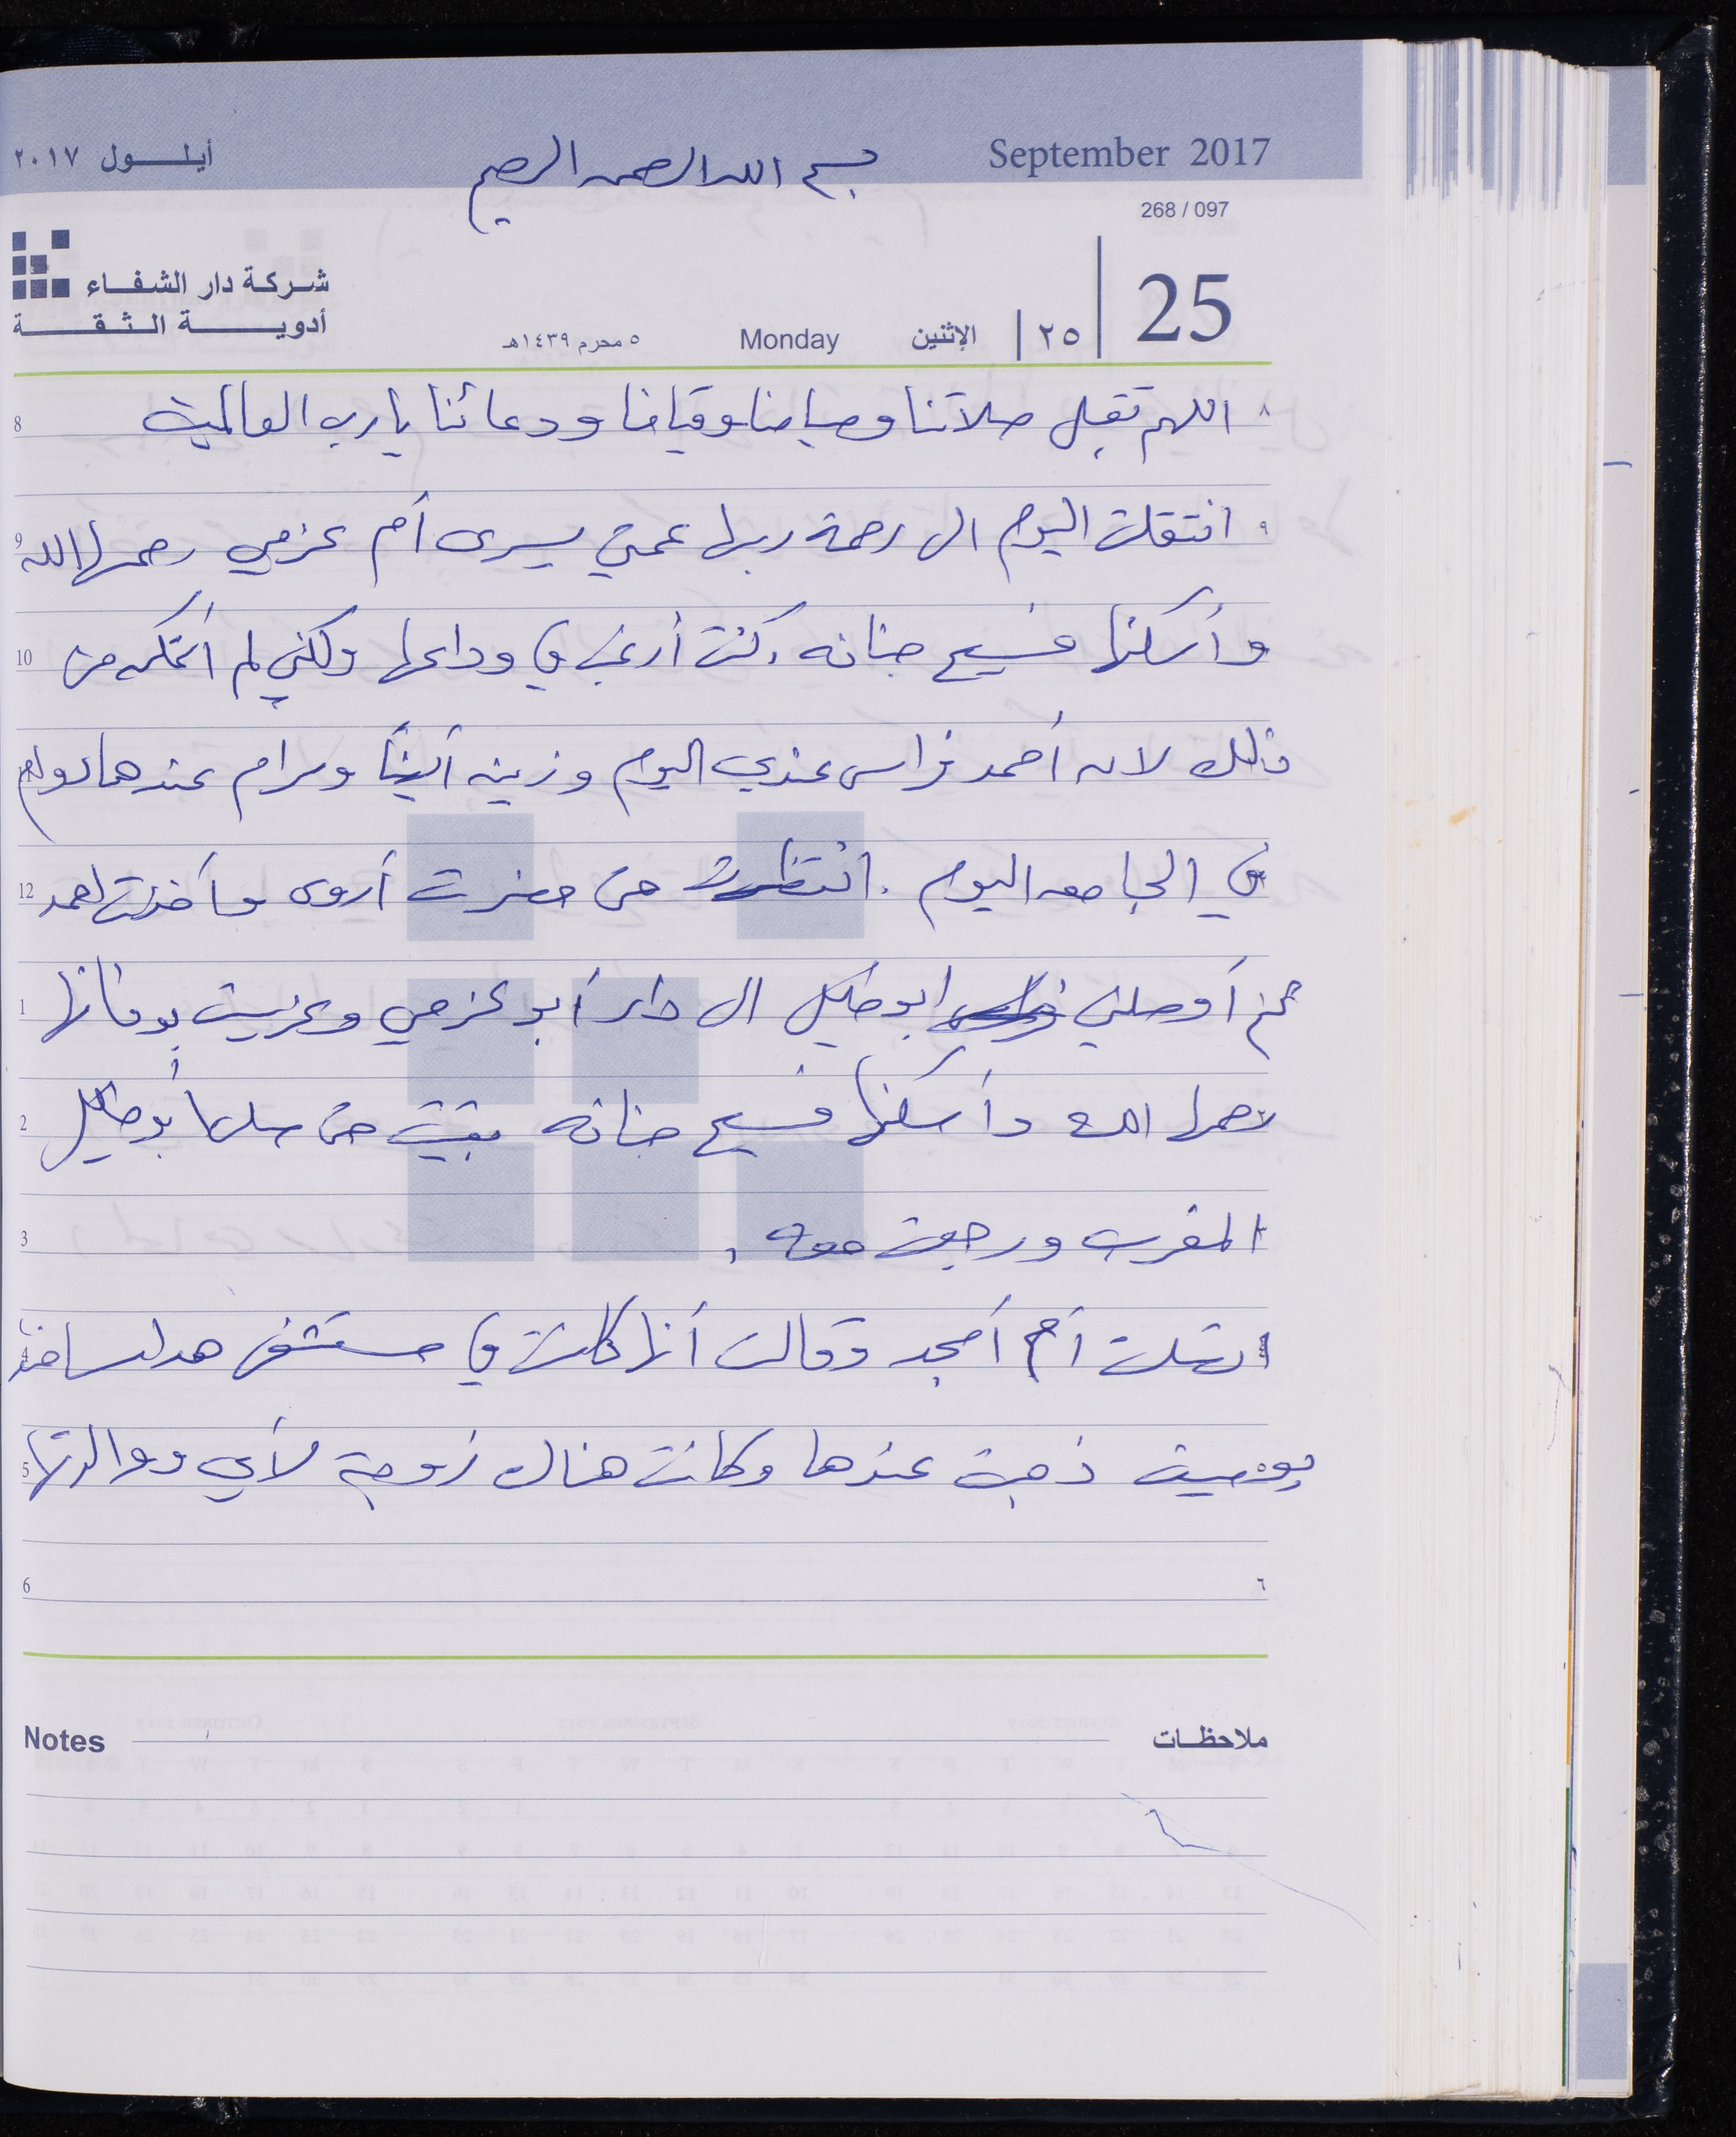 أيلول ٢٠١٧
بسم الله الرحمن الرحيم
September 2017
268 / 097
شركة دار الشفاء
أدوية الثقة
٥ محرم ١٤٣٩هـ Monday الإثنين ٢٥ 25
٨ اللهم تقبل صلاتنا وصيامنا وقيامنا ودعائنا يا رب العالمين 8
٩ انتقلت اليوم الى رحمة ربها عمتي يسرى أم عزمي رحمها الله 9
وأسكنها فسيح جنانه. كنت أرغب في وداعها ولكني لم أتمكن من 10
ذلك لان أحمد فراس عندي اليوم وزينه أيضاً ومرام عندها دوام
في الجامعه اليوم. انتظرت حتى حضرت أروى وأخذت احمد 12
ثم أوصلني ابو خليل الى دار أبو عزمي وعزيت بوفاتها 1
رحمها الله وأسكنها فسيح جنانه بقيت حتى صلى أبو خليل 2
المغرب ورجعت معه. 3
اتصلت أم أمجد وقالت أنها كانت في مستشفى هداسا منذ 4
يومين ذهبت عندها وكانت هناك زوجة لأي ووالدتها 5
٦ 6
Notes ملاحظات